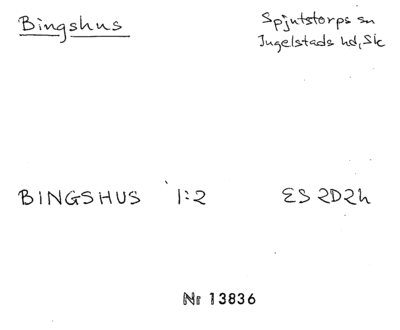 Bingshus
Spjutstorps sn
Ingelstads hd, Sk
BINGSHUS 1:2 ES 2D2h
Nr 13836